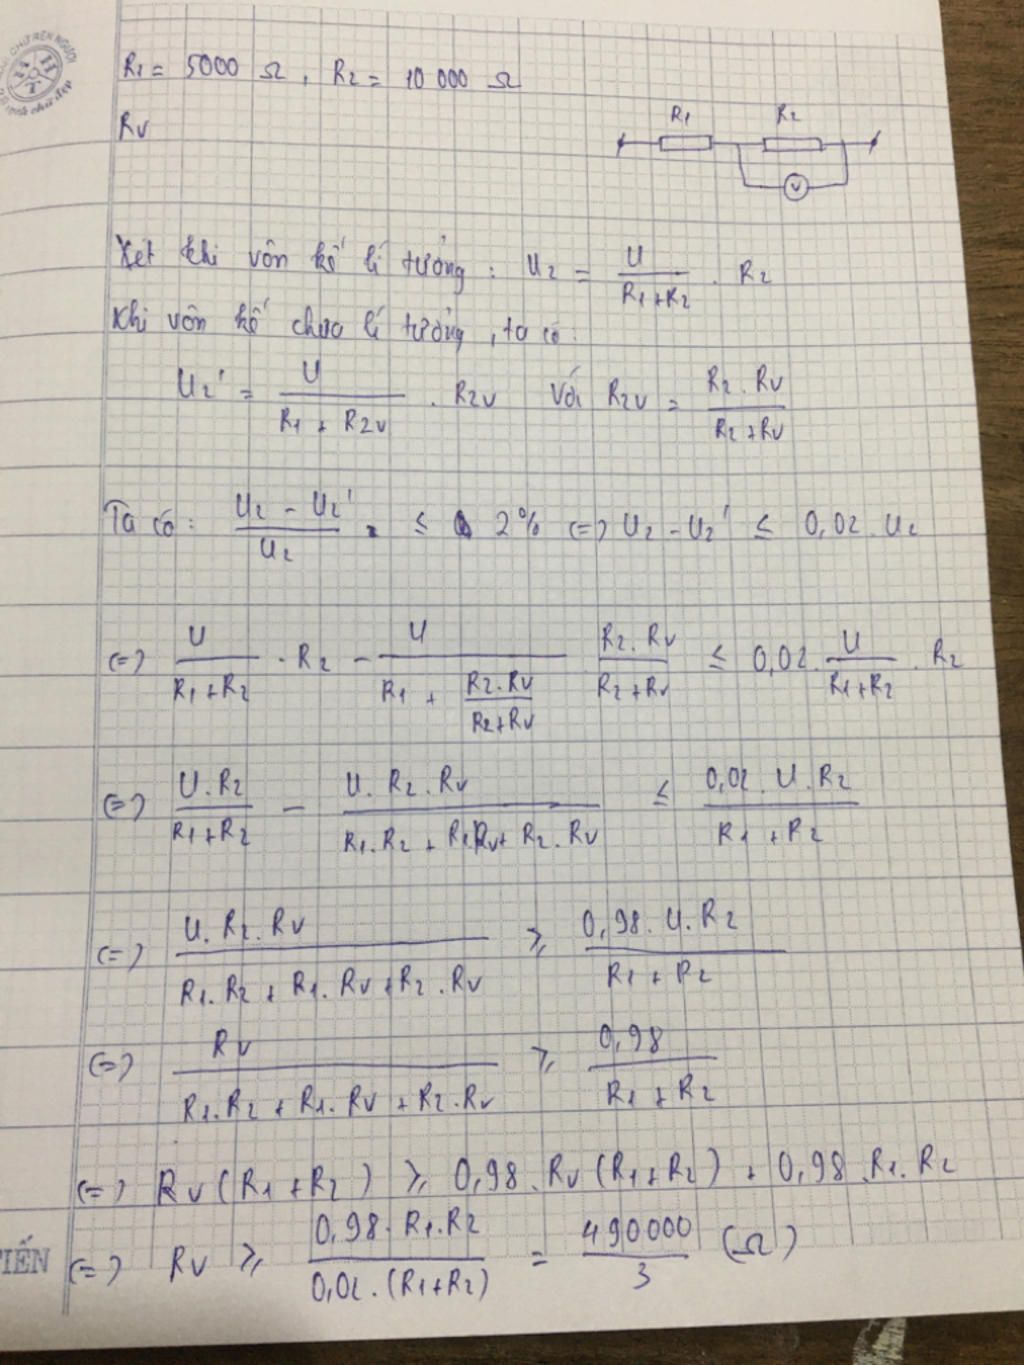 R1 = 5000 Ω, R2 = 10 000 Ω
Rv
R1 R2
V
Xét khi vôn kế lí tưởng: U2 = U/(R1+R2) . R2
Khi vôn kế chưa lí tưởng, ta có:
U2' = U/(R1 + R2v) . R2v với R2v = (R2.Rv)/(R2+Rv)
Ta có: (U2 - U2')/U2 ≤ 2% (=) U2 - U2' ≤ 0,02.U2
(=) U/(R1+R2) . R2 - U/(R1 + (R2.Rv)/(R2+Rv)) . (R2.Rv)/(R2+Rv) ≤ 0,02. U/(R1+R2) . R2
(=) (U.R2)/(R1+R2) - (U.R2.Rv)/(R1.R2 + R1Rv + R2.Rv) ≤ (0,02.U.R2)/(R1+R2)
(=) (U.R2.Rv)/(R1.R2 + R1.Rv + R2.Rv) ⩾ (0,98.U.R2)/(R1+R2)
(=) Rv/(R1.R2 + R1.Rv + R2.Rv) ⩾ 0,98/(R1+R2)
(=) Rv(R1+R2) ⩾ 0,98.Rv(R1+R2) + 0,98.R1.R2
(=) Rv ⩾ (0,98.R1.R2)/(0,02.(R1+R2)) = 490000/3 (Ω)
TIẾN